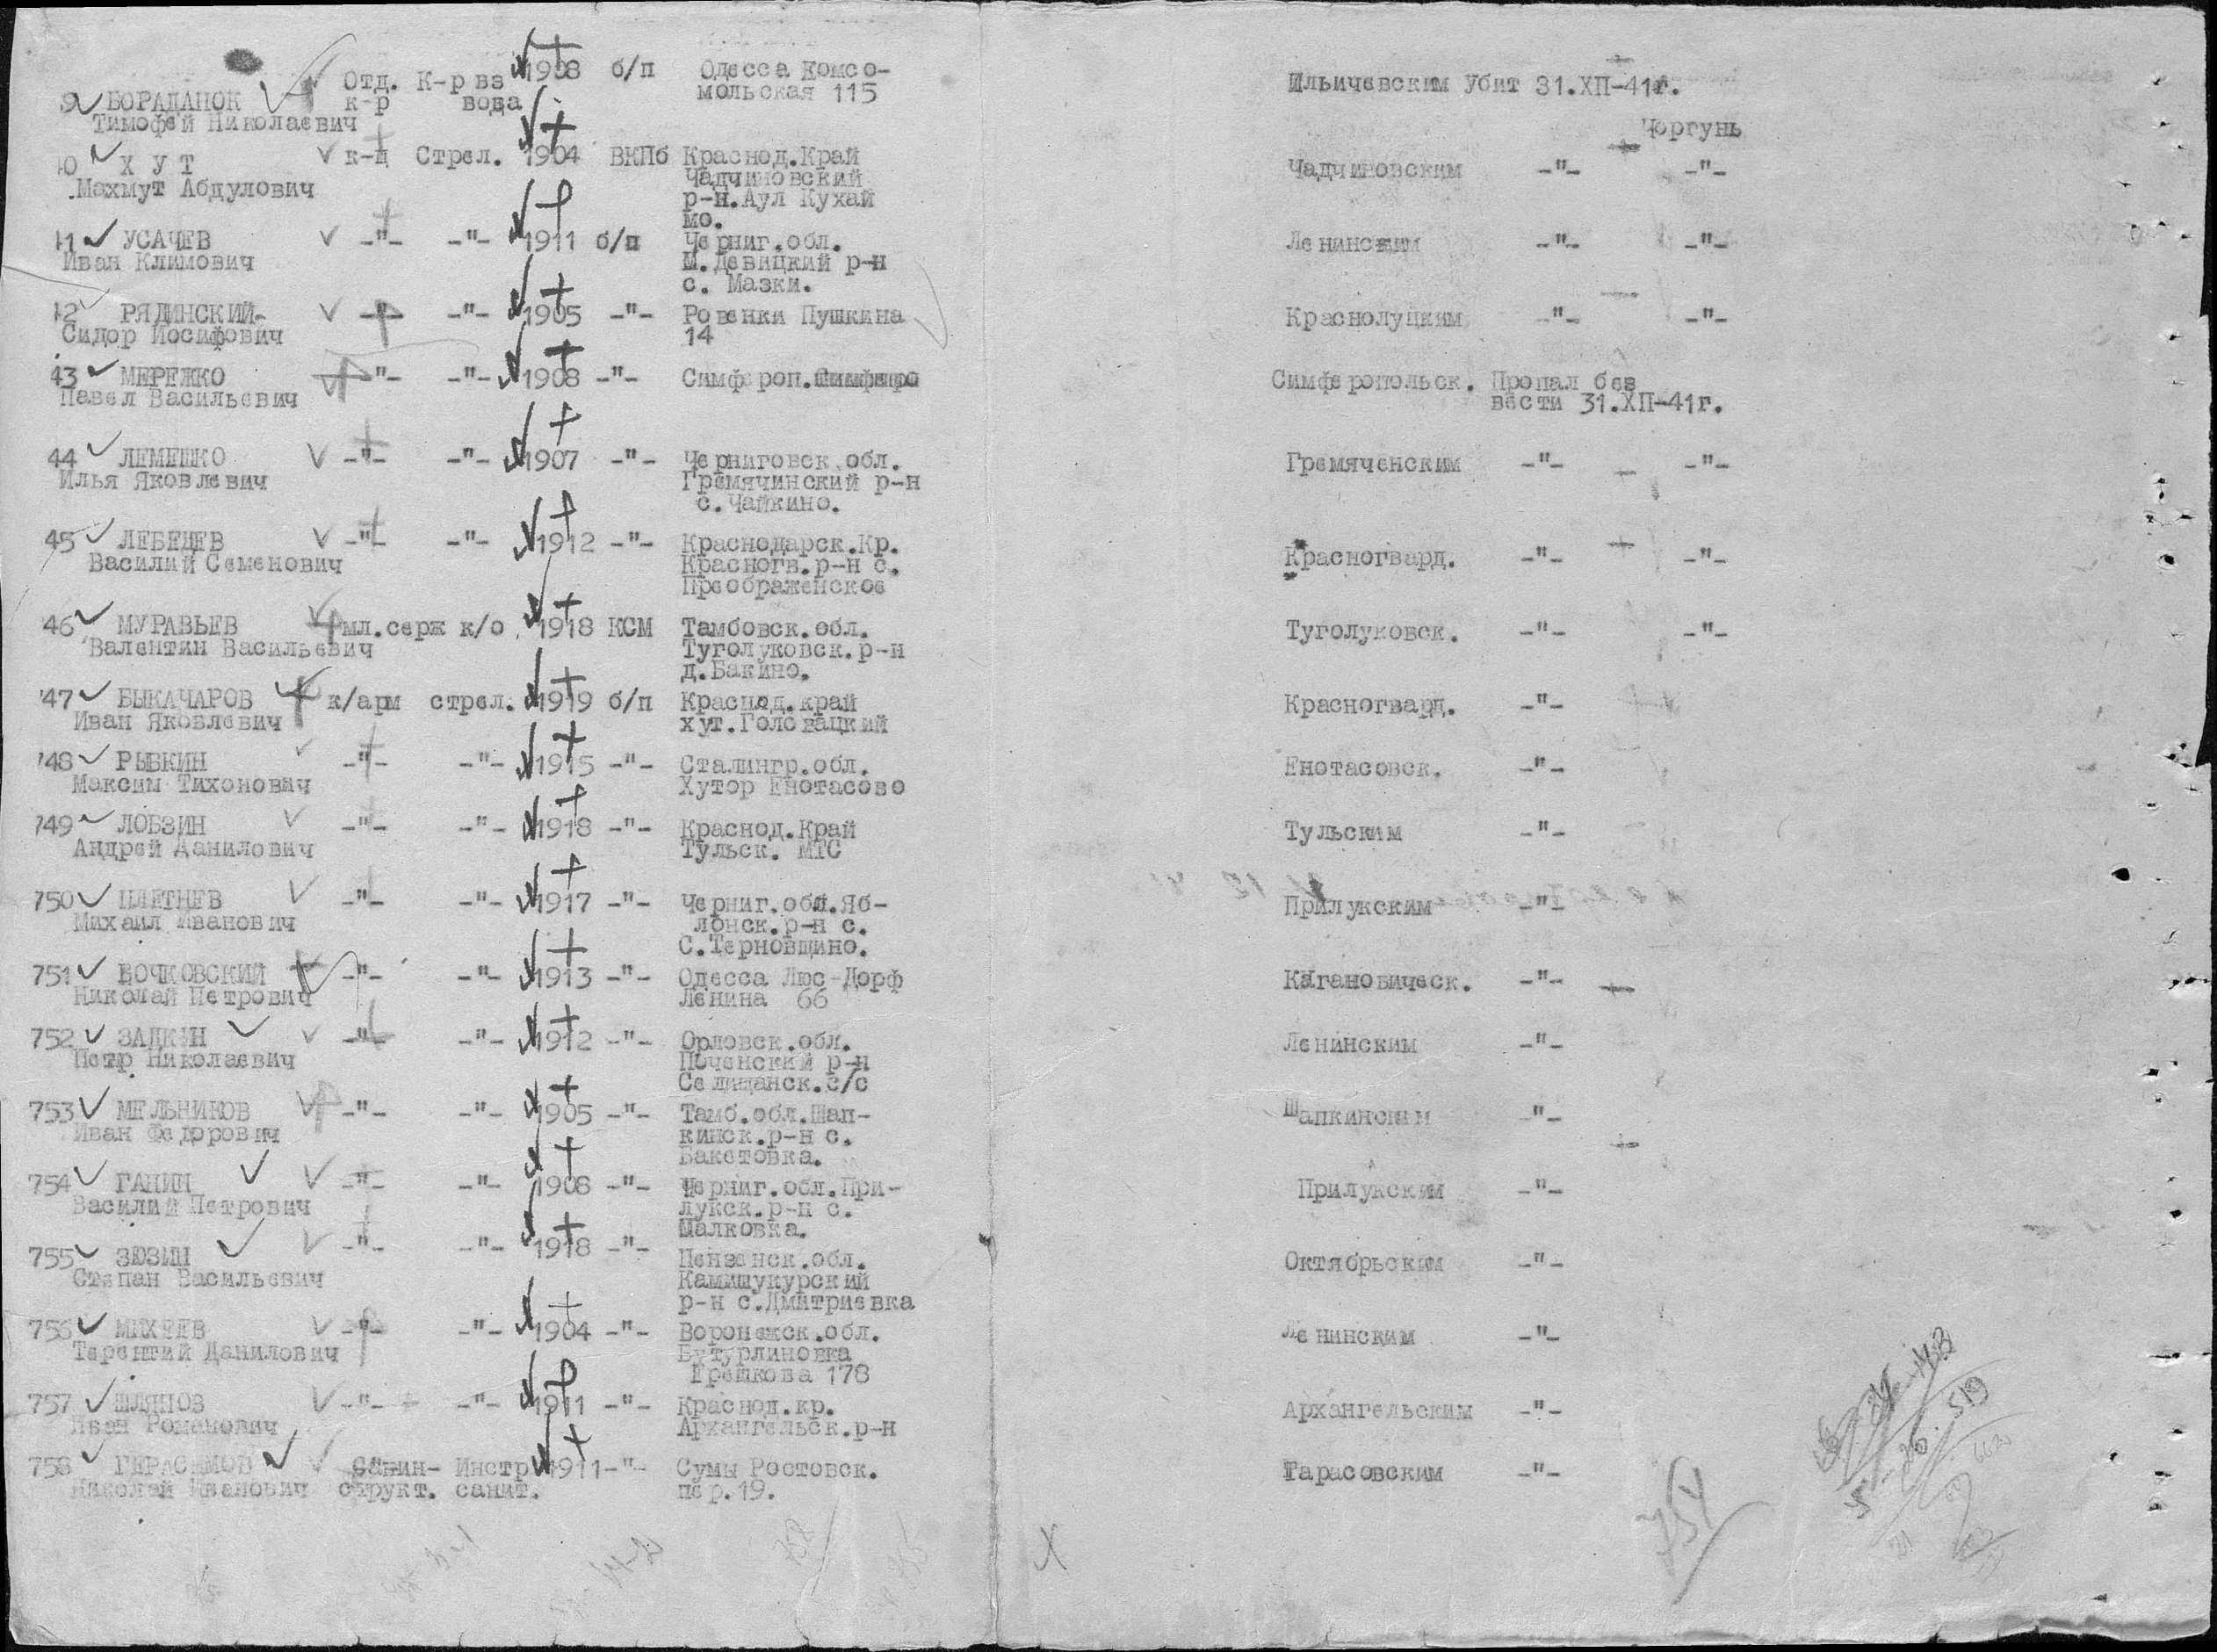 БОРАДАНОК Отд. К-р вз 1908 б/п Одесса Комсо- Ильичевским Убит 31.ХП-41г.
Тимофей Николаевич к-р вода мольская 115 Чоргунь
Х У Т к-ц Стрел. 1904 ВКПб Краснод.Край Чадчиновским -"- -"-
Махмут Абдулович Чадчиновский
р-н.Аул Кухай
мо.
УСАЧЕВ -"- -"- 1911 б/п Черниг.обл. Ленинским -"- -"-
Иван Климович М.Девицкий р-н
с. Мазки.
РЯДИНСКИЙ -"- -"- 1905 -"- Ровенки Пушкина Краснолуцким -"- -"-
Сидор Иосифович 14
43 МЕРЕЖКО -"- -"- 1908 -"- Симфероп. Симферопольск. Пропал без
Павел Васильевич вести 31.ХП-41г.
44 ЛЕМЕШКО -"- -"- 1907 -"- Черниговск.обл. Гремяченским -"- -"-
Илья Яковлевич Гремячинский р-н
с.Чайкино.
45 ЛЕБЕДЕВ -"- -"- 1912 -"- Краснодарск.Кр. Красногвард. -"- -"-
Василий Семенович Красногв.р-н с.
Преображенское
46 МУРАВЬЕВ мл.серж к/о 1918 КСМ Тамбовск.обл. Туголуковск. -"- -"-
Валентин Васильевич Туголуковск.р-н
д.Бакино.
747 БЫКАЧАРОВ к/арм стрел. 1919 б/п Краснод.край Красногвард. -"-
Иван Яковлевич хут.Головацкий
748 РЫВКИН -"- -"- 1915 -"- Сталингр.обл. Енотасовск. -"-
Максим Тихонович Хутор Енотасово
749 ЛОБЗИН -"- -"- 1918 -"- Краснод.Край Тульским -"-
Андрей Данилович Тульск. МТС
750 ПЛЕТНЕВ -"- -"- 1917 -"- Черниг.обл.Яб- Прилукским -"-
Михаил Иванович лонск.р-н с.
С.Терновщино.
751 БОЧКОВСКИЙ -"- -"- 1913 -"- Одесса Люс-Дорф Кагановическ. -"-
Николай Петрович Ленина 66
752 ЗАДКИН -"- -"- 1912 -"- Орловск.обл. Ленинским -"-
Петр Николаевич Поченский р-н
Селищанск.с/с
753 МЕЛЬНИКОВ -"- -"- 1905 -"- Тамб.обл.Шап- Шапкинским -"-
Иван Федорович кинск.р-н с.
Бакетовка.
754 ГАНИН -"- -"- 1908 -"- Черниг.обл.При- Прилукским -"-
Василий Петрович лукск.р-н с.
Малковка.
755 ЗЮЗИН -"- -"- 1918 -"- Пензенск.обл. Октябрьским -"-
Степан Васильевич Камишукурский
р-н с.Дмитриевка
756 МИХЕЕВ -"- -"- 1904 -"- Воронежск.обл. Ленинским -"-
Терентий Данилович Бутурлиновка
Грешкова 178
757 ШЛЯНОВ -"- -"- 1911 -"- Краснод.кр. Архангельским -"-
Иван Романович Архангельск.р-н
758 ГЕРАСИМОВ Санин- Инстр 1911-"- Сумы Ростовск. Тарасовским -"-
Николай Иванович структ. санит. пер.19.
754